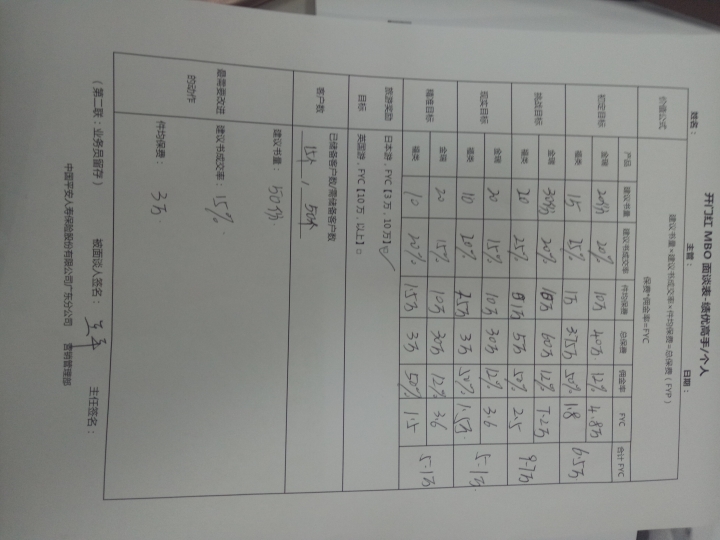 开门红 MBO 面谈表-绩优高手/个人
姓名： 主管： 日期：
价值公式 建议书量*建议书成交率*件均保费=总保费（FYP）
保费*佣金率=FYC
产品 建议书量 建议书成交率 件均保费 总保费 佣金率 FYC 合计 FYC
初定目标 金瑞 20份 20% 10万 40万 12% 4.8万 6.5万
福类 15 25% 1万 3.75万 50% 1.8
挑战目标 金瑞 30份 20% 10万 60万 12% 7.2万 9.7万
福类 20 25% 1万 5万 50% 2.5
现实目标 金瑞 20 15% 10万 30万 12% 3.6 5.1万
福类 10 20% 1.5万 3万 50% 1.5万
精准目标 金瑞 20 15% 10万 30万 12% 3.6 5.1万
福类 10 20% 1.5万 3万 50% 1.5
旅游奖励目标 日本游，FYC【3万，10万】☑
英国游，FYC【10万，以上】□
客户数 已储备客户数/需储备客户数
15个， 50个
最需要改进的动作 建议书量： 50份
建议书成交率： 15%
件均保费： 3万
被面谈人签名： 主任签名：
（第二联：业务员留存） 中国平安人寿保险股份有限公司广东分公司 营销管理部